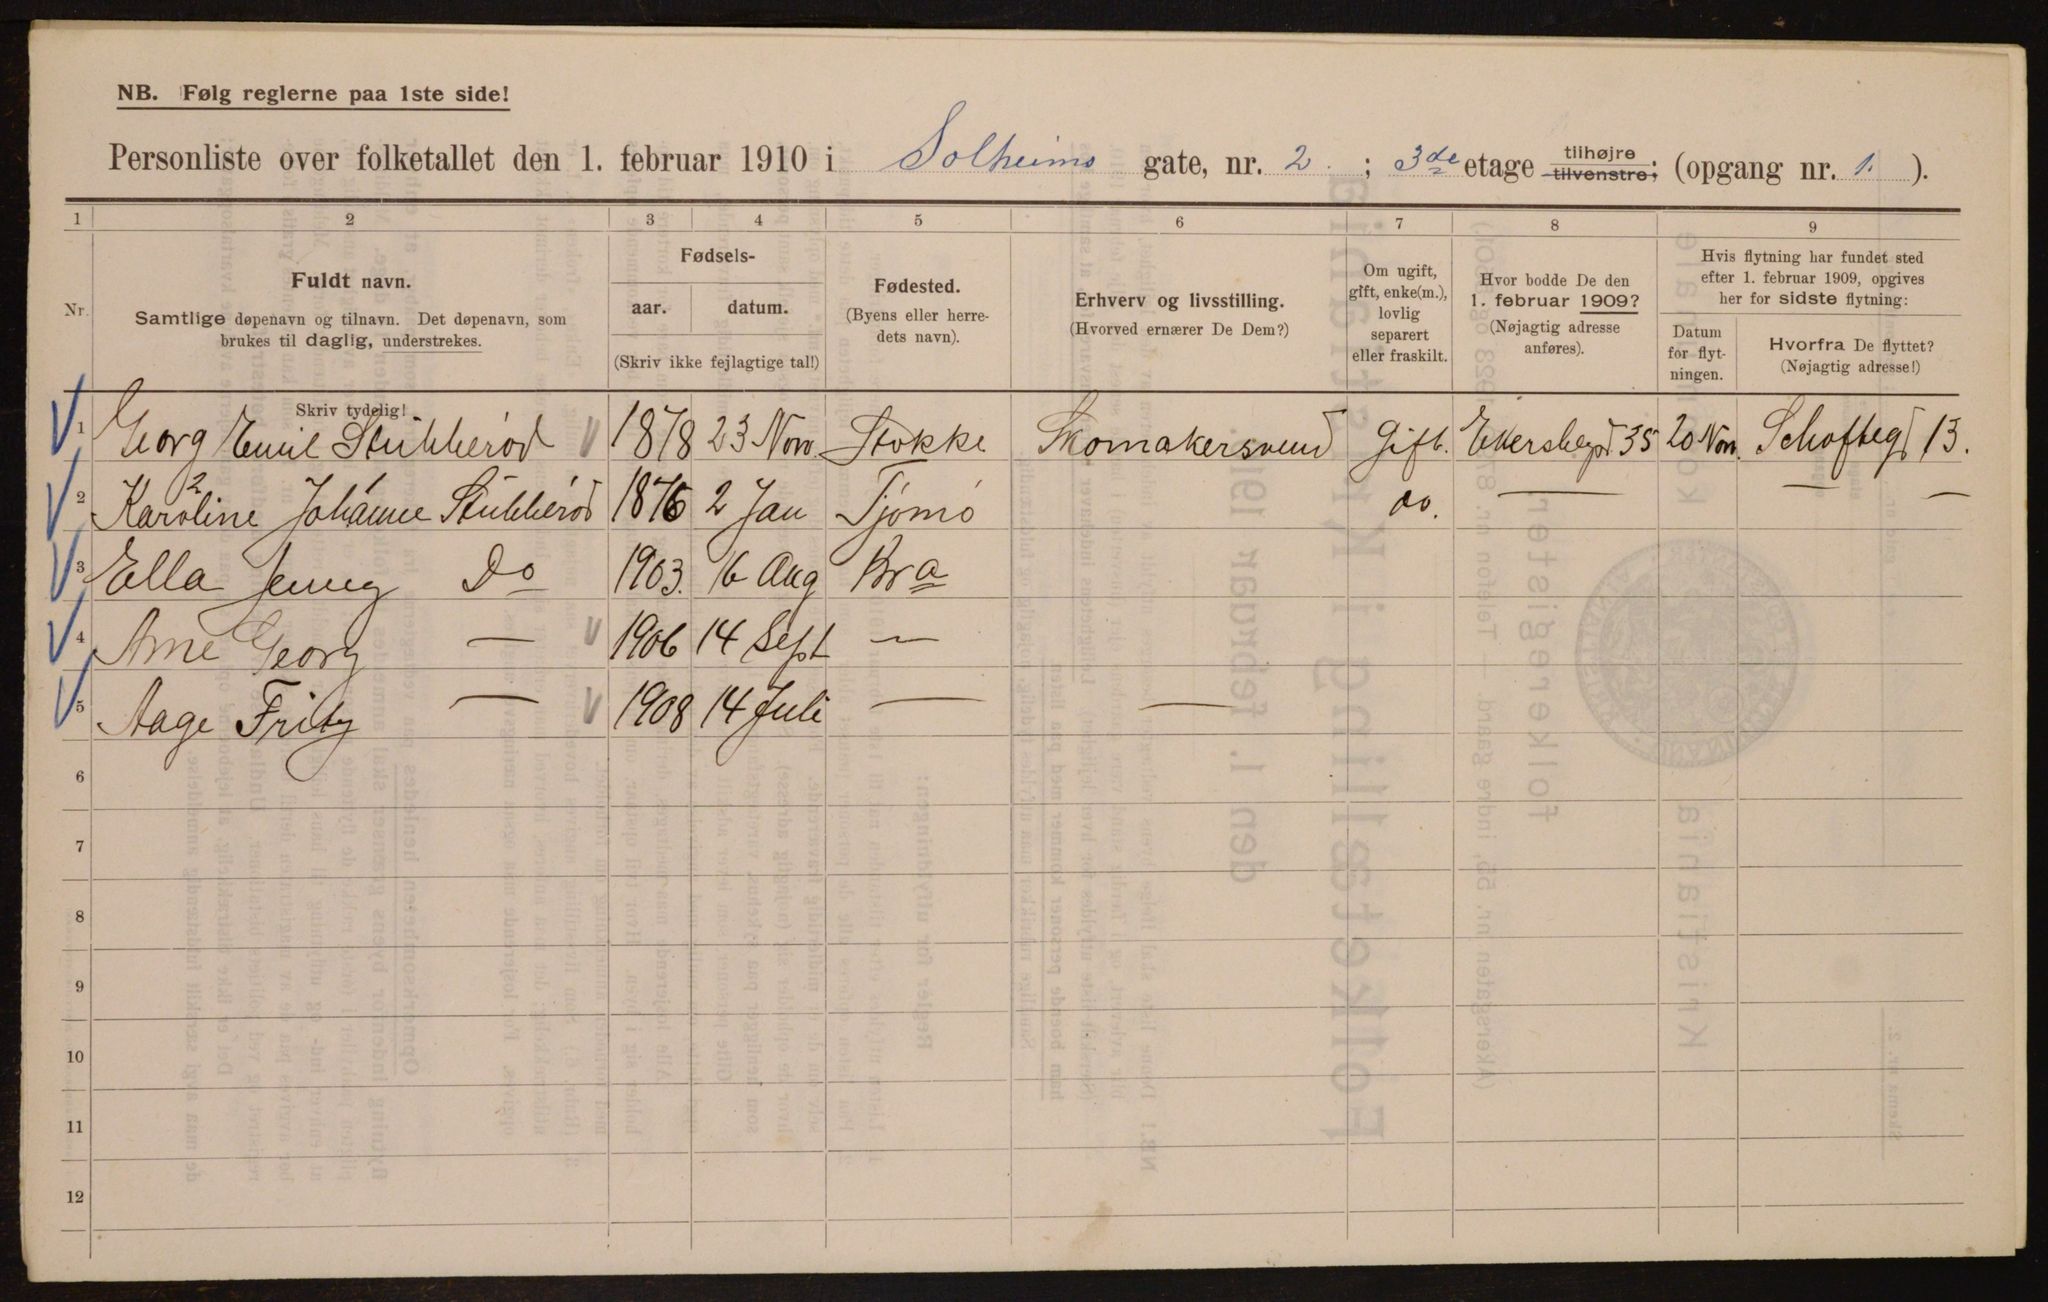 NB. Følg reglerne paa 1ste side!
Personliste over folketallet den 1. februar 1910 i Solheims gate, nr. 2 ; 3de etage tilhøjre tilvenstre; (opgang nr. 1. ).
1 2 3 4 5 6 7 8 9
Nr. Fuldt navn. Samtlige døpenavn og tilnavn. Det døpenavn, som brukes til daglig, understrekes.
Fødsels- aar. datum. (Skriv ikke fejlagtige tal!)
Fødested. (Byens eller herredets navn).
Erhverv og livsstilling. (Hvorved ernærer De Dem?)
Om ugift, gift, enke(m.), lovlig separert eller fraskilt.
Hvor bodde De den 1. februar 1909? (Nøjagtig adresse anføres).
Hvis flytning har fundet sted efter 1. februar 1909, opgives her for sidste flytning:
Datum for flytningen. Hvorfra De flyttet? (Nøjagtig adresse!)
Skriv tydelig!
1 Georg Emil Stubberød 1878 23 Nov. Stokke Skomakersvend Gift. 35 20 Nov. 13.
2 Karoline Johanne Stubberød 1876 2 Jan Tjømø do. — — —
3 Ella Jenny Do 1903. 16 Aug Kra
4 Arne Georg — 1906 14 Sept —
5 Aage Fritz — 1908 14 Juli — —
6
7
8
9
10
11
12